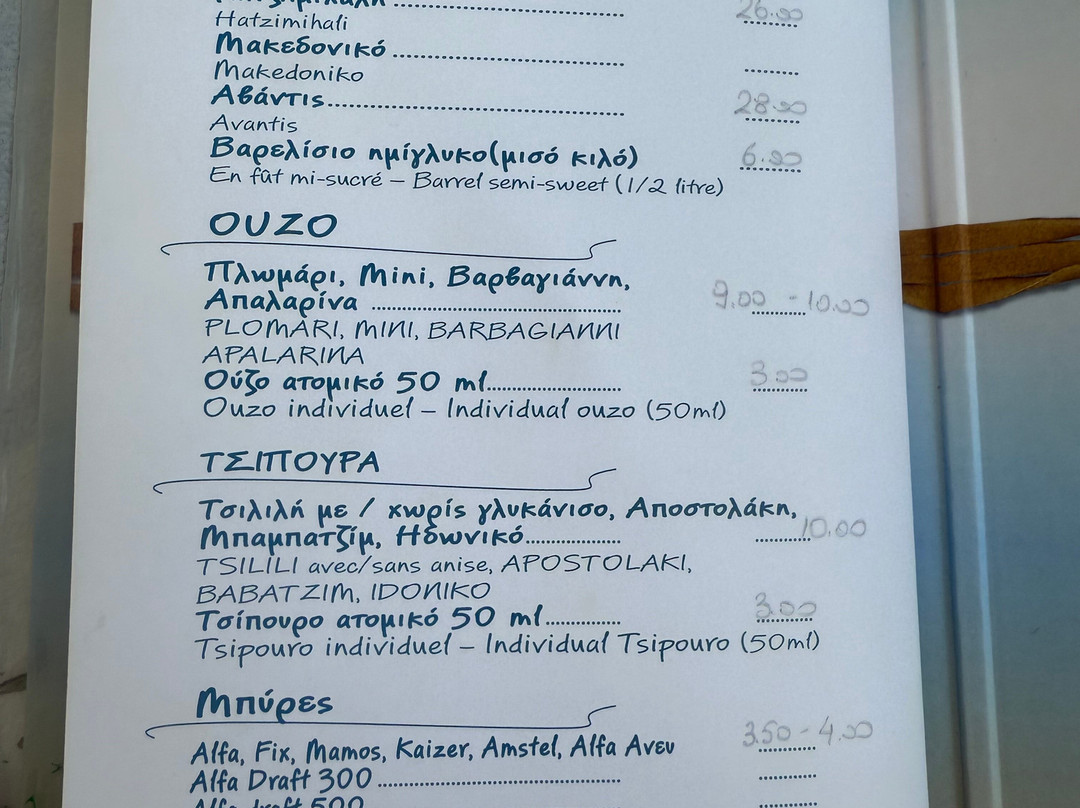 Hatzimihali 26.00
Μακεδονικό
Makedoniko
Αβάντις 28.00
Avantis
Βαρελίσιο ημίγλυκο(μισό κιλό) 6.00
En fût mi-sucré – Barrel semi-sweet (1/2 litre)
ΟΥΖΟ
Πλωμάρι, Mini, Βαρβαγιάννη,
Απαλαρίνα 9.00 - 10.00
PLOMARI, MINI, BARBAGIANNI
APALARINA
Ούζο ατομικό 50 ml 3.00
Ouzo individuel – Individual ouzo (50ml)
ΤΣΙΠΟΥΡΑ
Τσιλιλή με / χωρίς γλυκάνισο, Αποστολάκη,
Μπαμπατζίμ, Ηδωνικό 10.00
TSILILI avec/sans anise, APOSTOLAKI,
BABATZIM, IDONIKO
Τσίπουρο ατομικό 50 ml 3.00
Tsipouro individuel – Individual Tsipouro (50ml)
Μπύρες
Alfa, Fix, Mamos, Kaizer, Amstel, Alfa Ανευ 3.50 - 4.00
Alfa Draft 300
Alfa draft 500